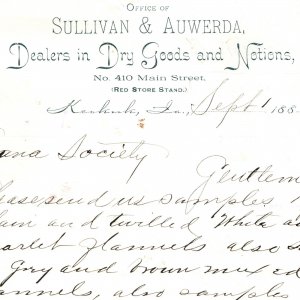 OFFICE OF
SULLIVAN & AUWERDA,
Dealers in Dry Goods and Notions,
No. 410 Main Street,
(RED STORE STAND.)
Keokuk, Ia., Sept 1 188
ana Society
Gentlem
ease send us samples
ain and twilled White a
arlet flannels also s
Grey and brown mixed
annels, also samples